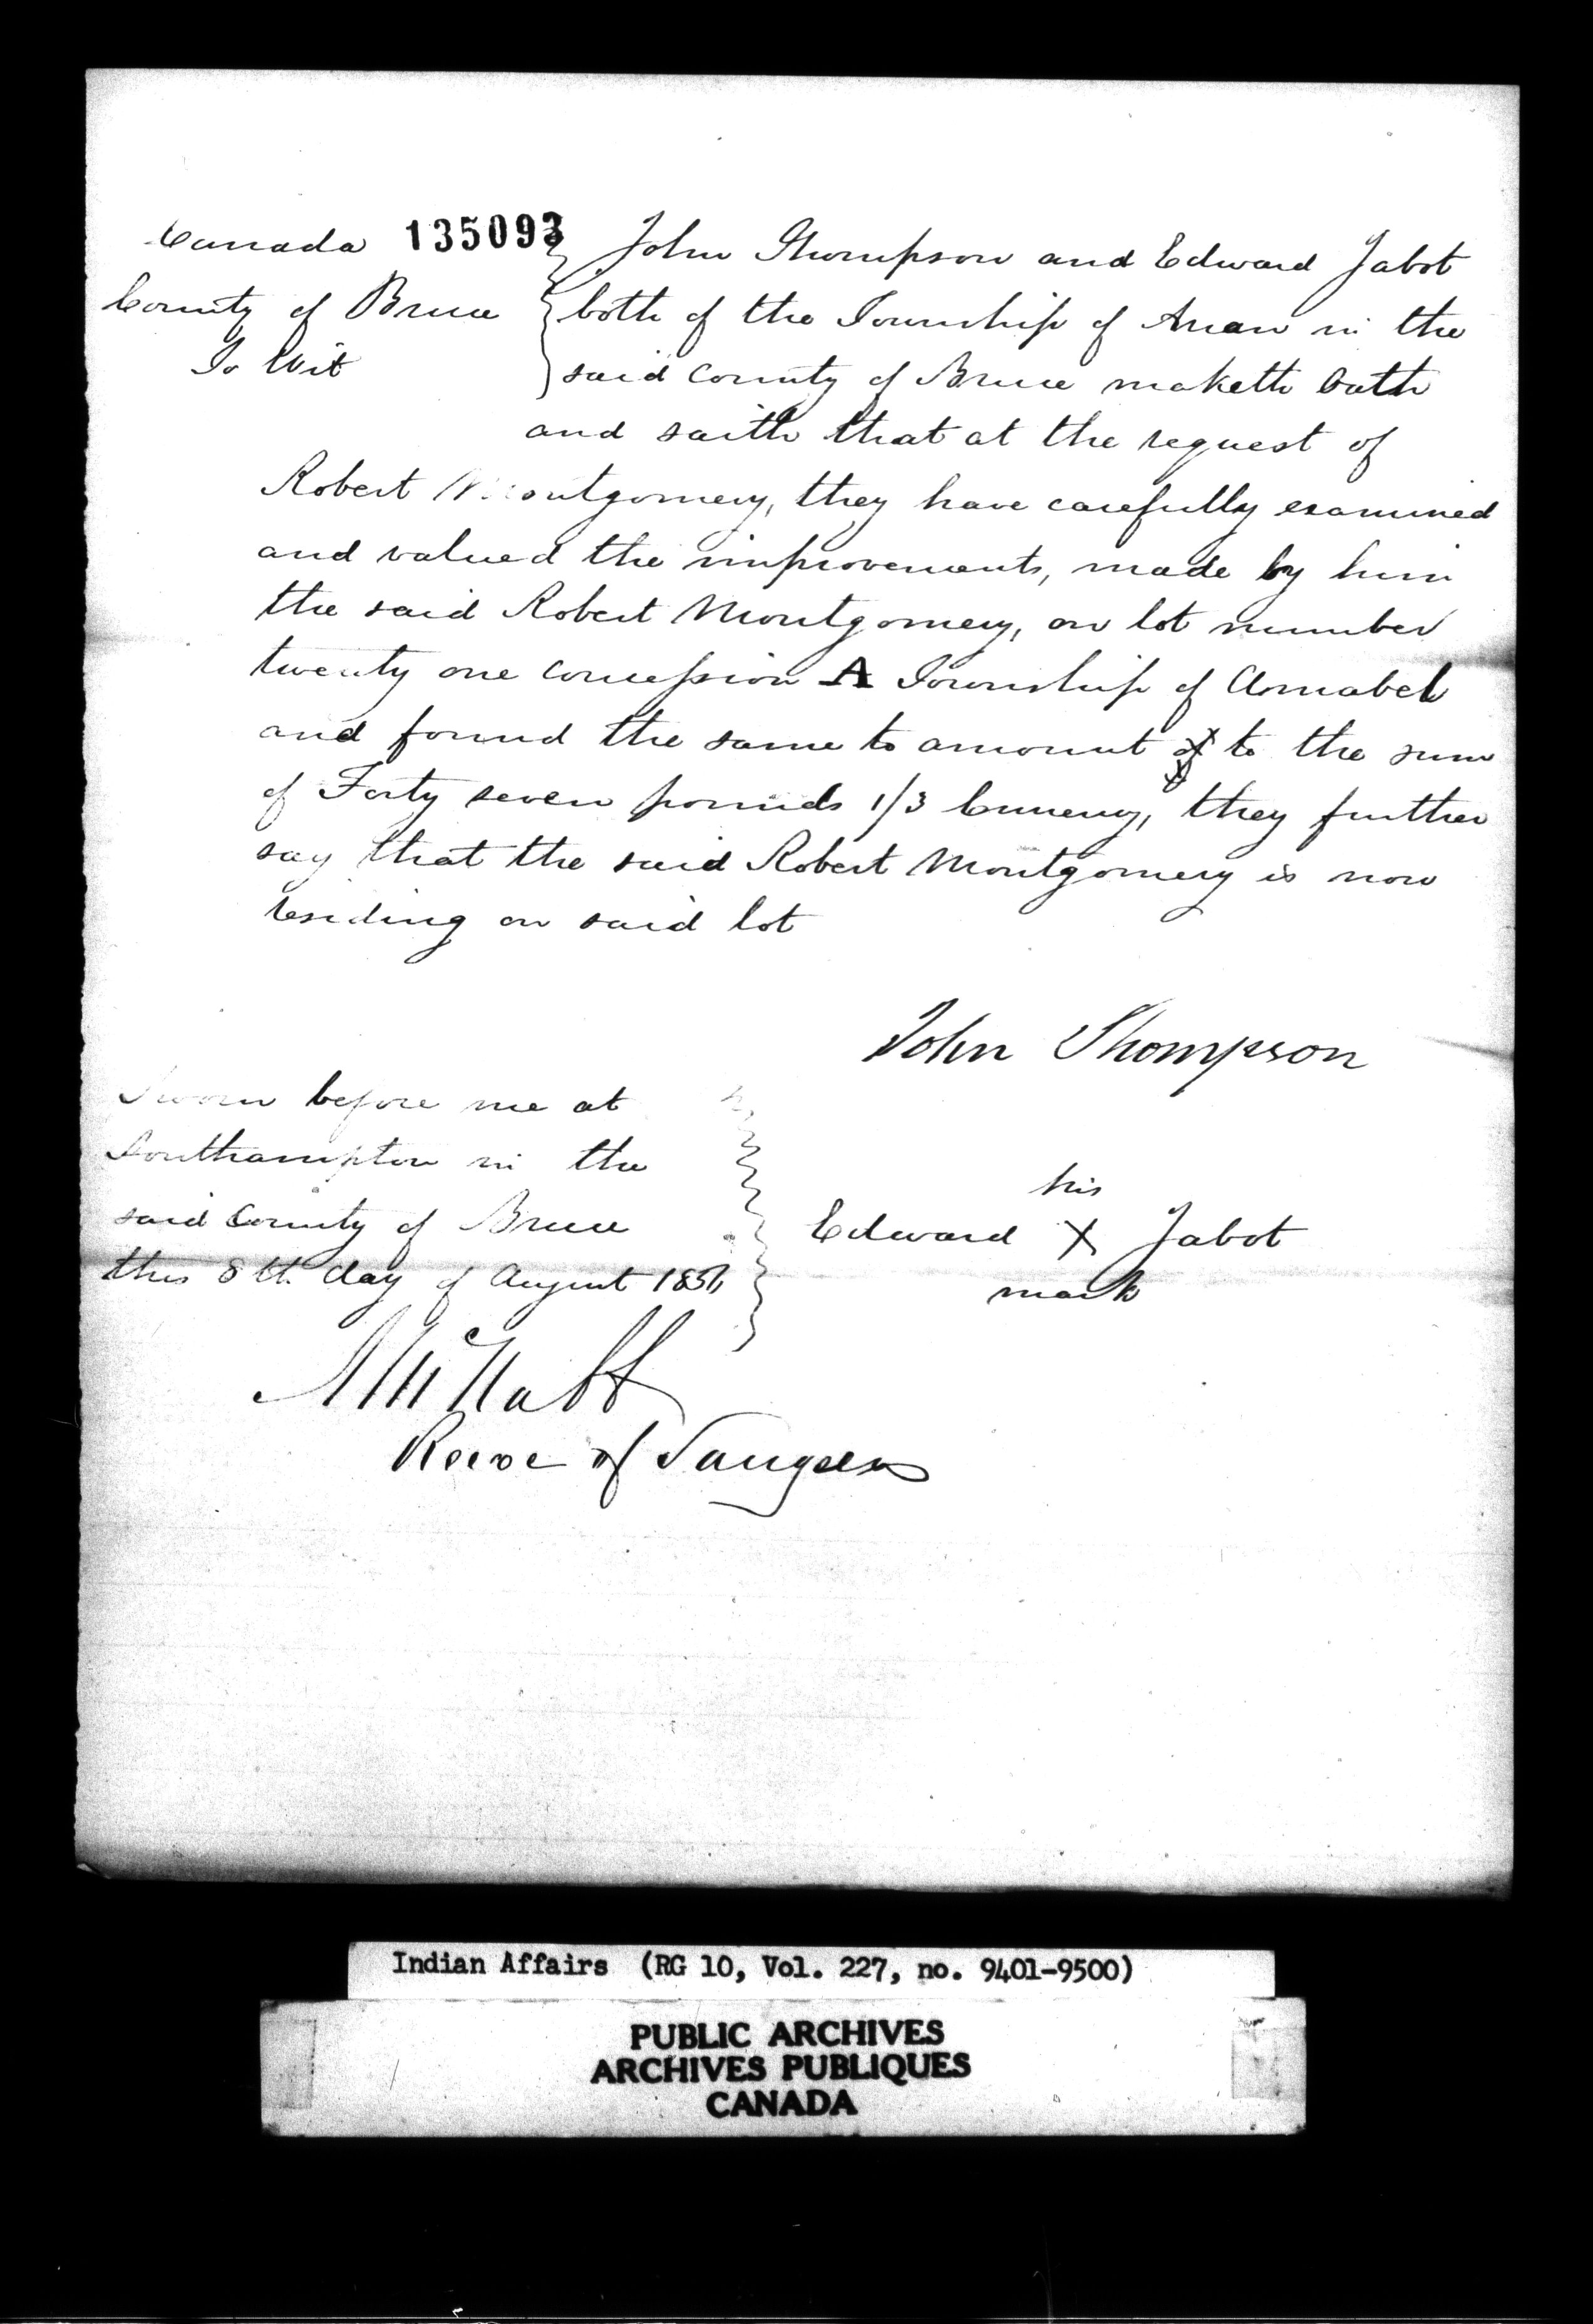 Canada 135093 } John Thompson and Edward Jabot
County of Bruce } both of the Township of Arran in the
To Wit } said County of Bruce maketh Oath
and saith that at the request of
Robert Montgomery, they have carefully examined
and valued the improvements, made by him
the said Robert Montgomery, on lot number
twenty one concession A Township of Amabel
and found the same to amount of to the sum
of Forty seven pounds 1/3 Currency, they further
say that the said Robert Montgomery is now
residing on said lot
John Thompson
Sworn before me at
Southampton in the
said County of Bruce
this 8th day of August
his
Edward X Jabot
mark
A McNabb
Reeve of Saugeen
Indian Affairs (RG 10, Vol. 227, no. 9401-9500)
PUBLIC ARCHIVES
ARCHIVES PUBLIQUES
CANADA